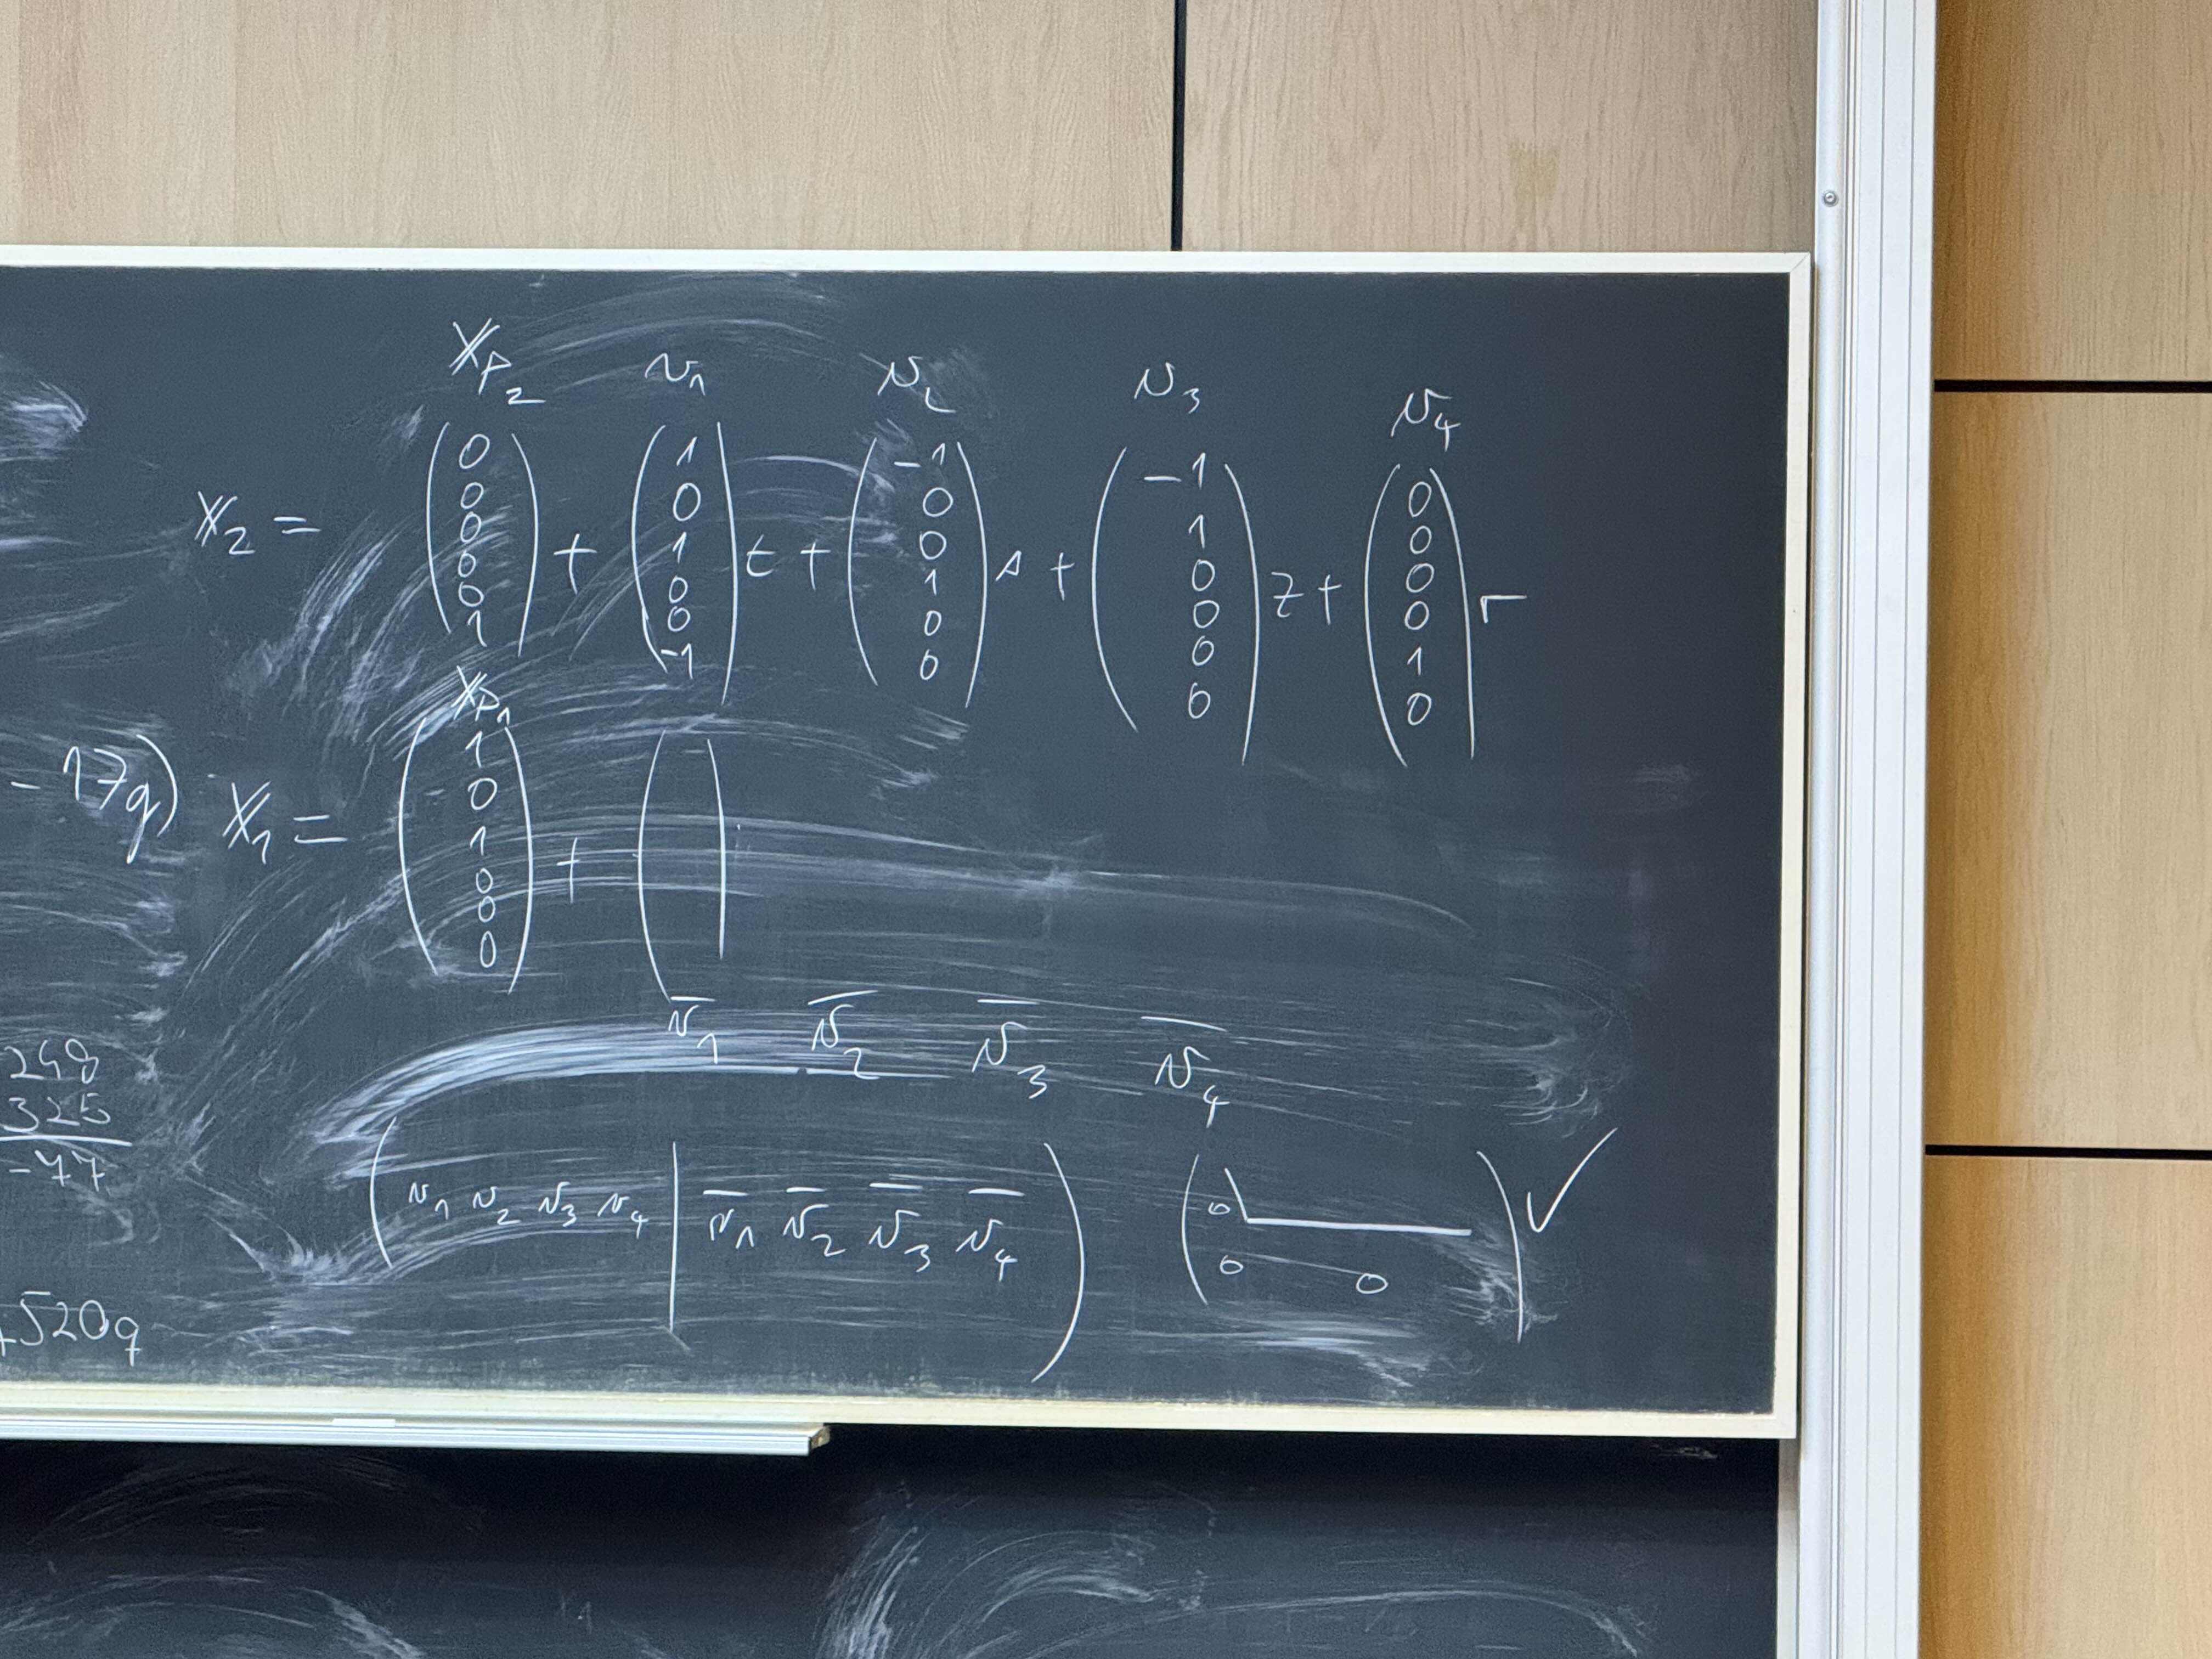 X_p2 v_1 v_2 v_3 v_4
X_2 = (0 0 0 0 0 1) + (1 0 1 0 0 -1) t + (-1 0 0 1 0 0) s + (-1 1 0 0 0 0) z + (0 0 0 0 1 0) r
X_p1
-17q) X_1 = (1 0 1 0 0 0) + ( )
v̅_1 v̅_2 v̅_3 v̅_4
248
325
-77
(v_1 v_2 v_3 v_4 | v̅_1 v̅_2 v̅_3 v̅_4) (0 0 0) ✓
+520q